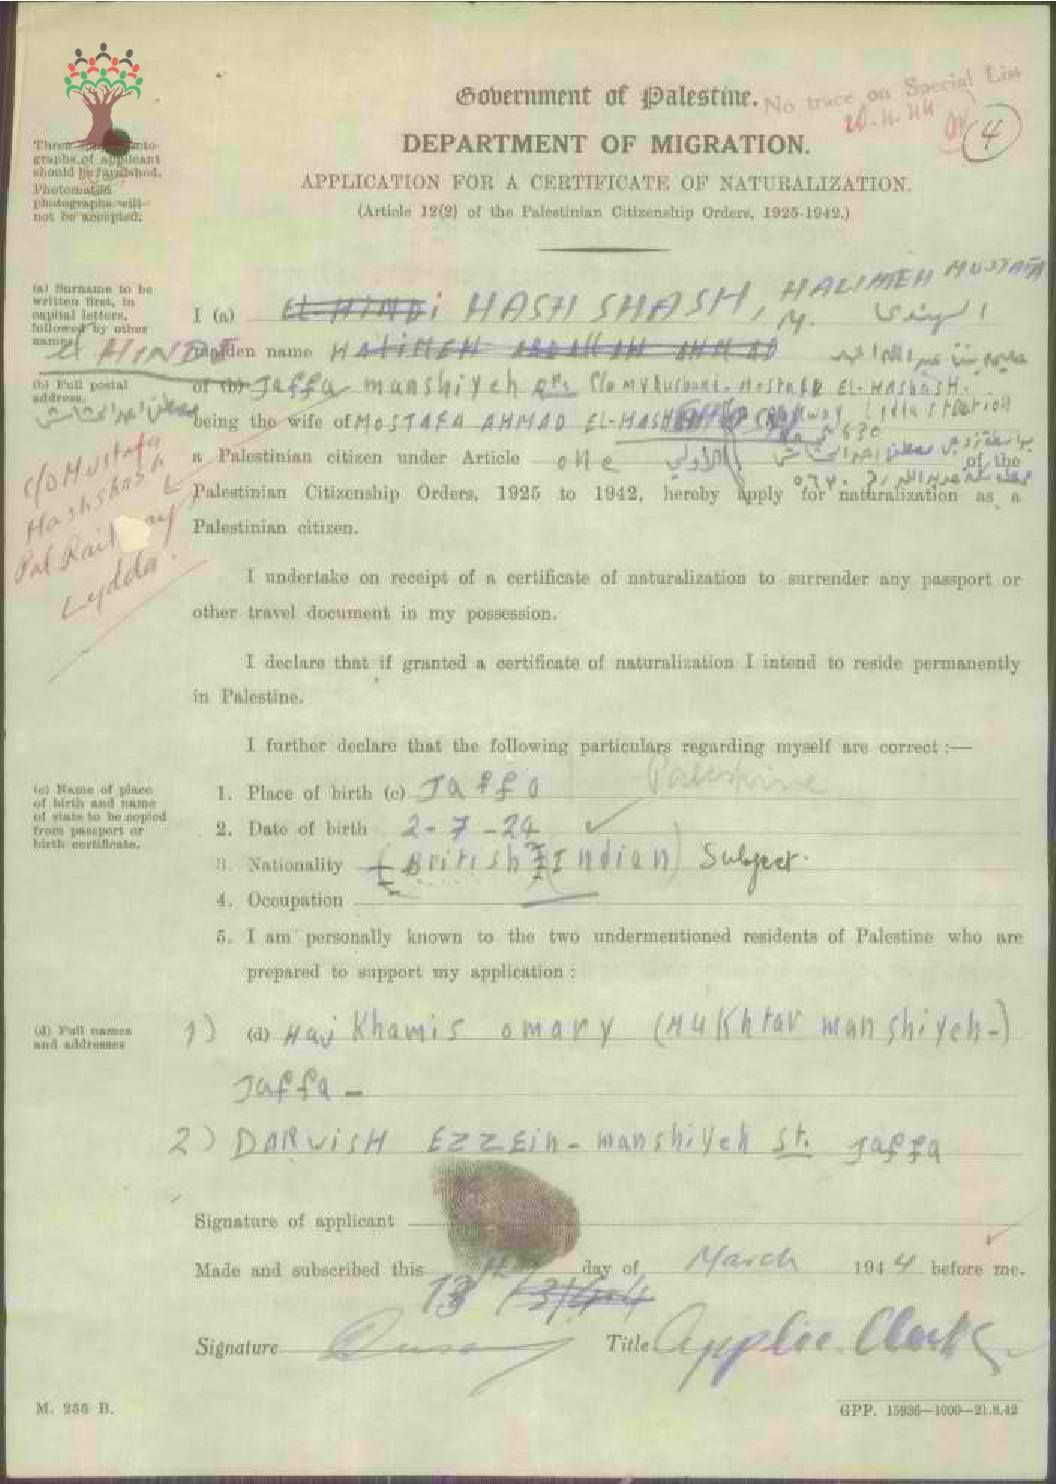 Government of Palestine.
No trace on Special List
20.4.44
4
DEPARTMENT OF MIGRATION.
APPLICATION FOR A CERTIFICATE OF NATURALIZATION.
(Article 12(2) of the Palestinian Citizenship Orders, 1925-1942.)
Three
graphs of applicant
should be furnished.
Photomaton
photographs will
not be accepted.
(a) Surname to be
written first, in
capital letters,
followed by other
names.
I (a) EL-HINDI HASHSHASH, HALIMEH MUSTAFA
M. الهندي
el HINDI
maiden name HALIMEH ABDALLAH AHMAD
(b) Full postal
address.
of (b) Jaffa manshiyeh Qr. C/o My husband- Mostafa EL-HASHASH.
being the wife of MOSTAFA AHMAD EL-HASHASH Railway Lydda station
a Palestinian citizen under Article one of the
Palestinian Citizenship Orders, 1925 to 1942, hereby apply for naturalization as a
Palestinian citizen.
c/o Mustafa
Hashshash
Pal Railway
Lydda.
I undertake on receipt of a certificate of naturalization to surrender any passport or
other travel document in my possession.
I declare that if granted a certificate of naturalization I intend to reside permanently
in Palestine.
I further declare that the following particulars regarding myself are correct :—
(c) Name of place
of birth and name
of state to be copied
from passport or
birth certificate.
1. Place of birth (c) Jaffa Palestine
2. Date of birth 2-7-24
3. Nationality (British) (Indian) Subject.
4. Occupation
5. I am personally known to the two undermentioned residents of Palestine who are
prepared to support my application :
(d) Full names
and addresses
1) (d) Haj Khamis omary (Mukhtar manshiyeh-)
Jaffa -
2) DARWISH EZZEIN - manshiyeh St. Jaffa
Signature of applicant
Made and subscribed this 13th day of March 1944 before me.
13/3/44
Signature
Title Applic. Clerk
M. 255 B.
GPP. 15936—1000—21.8.42